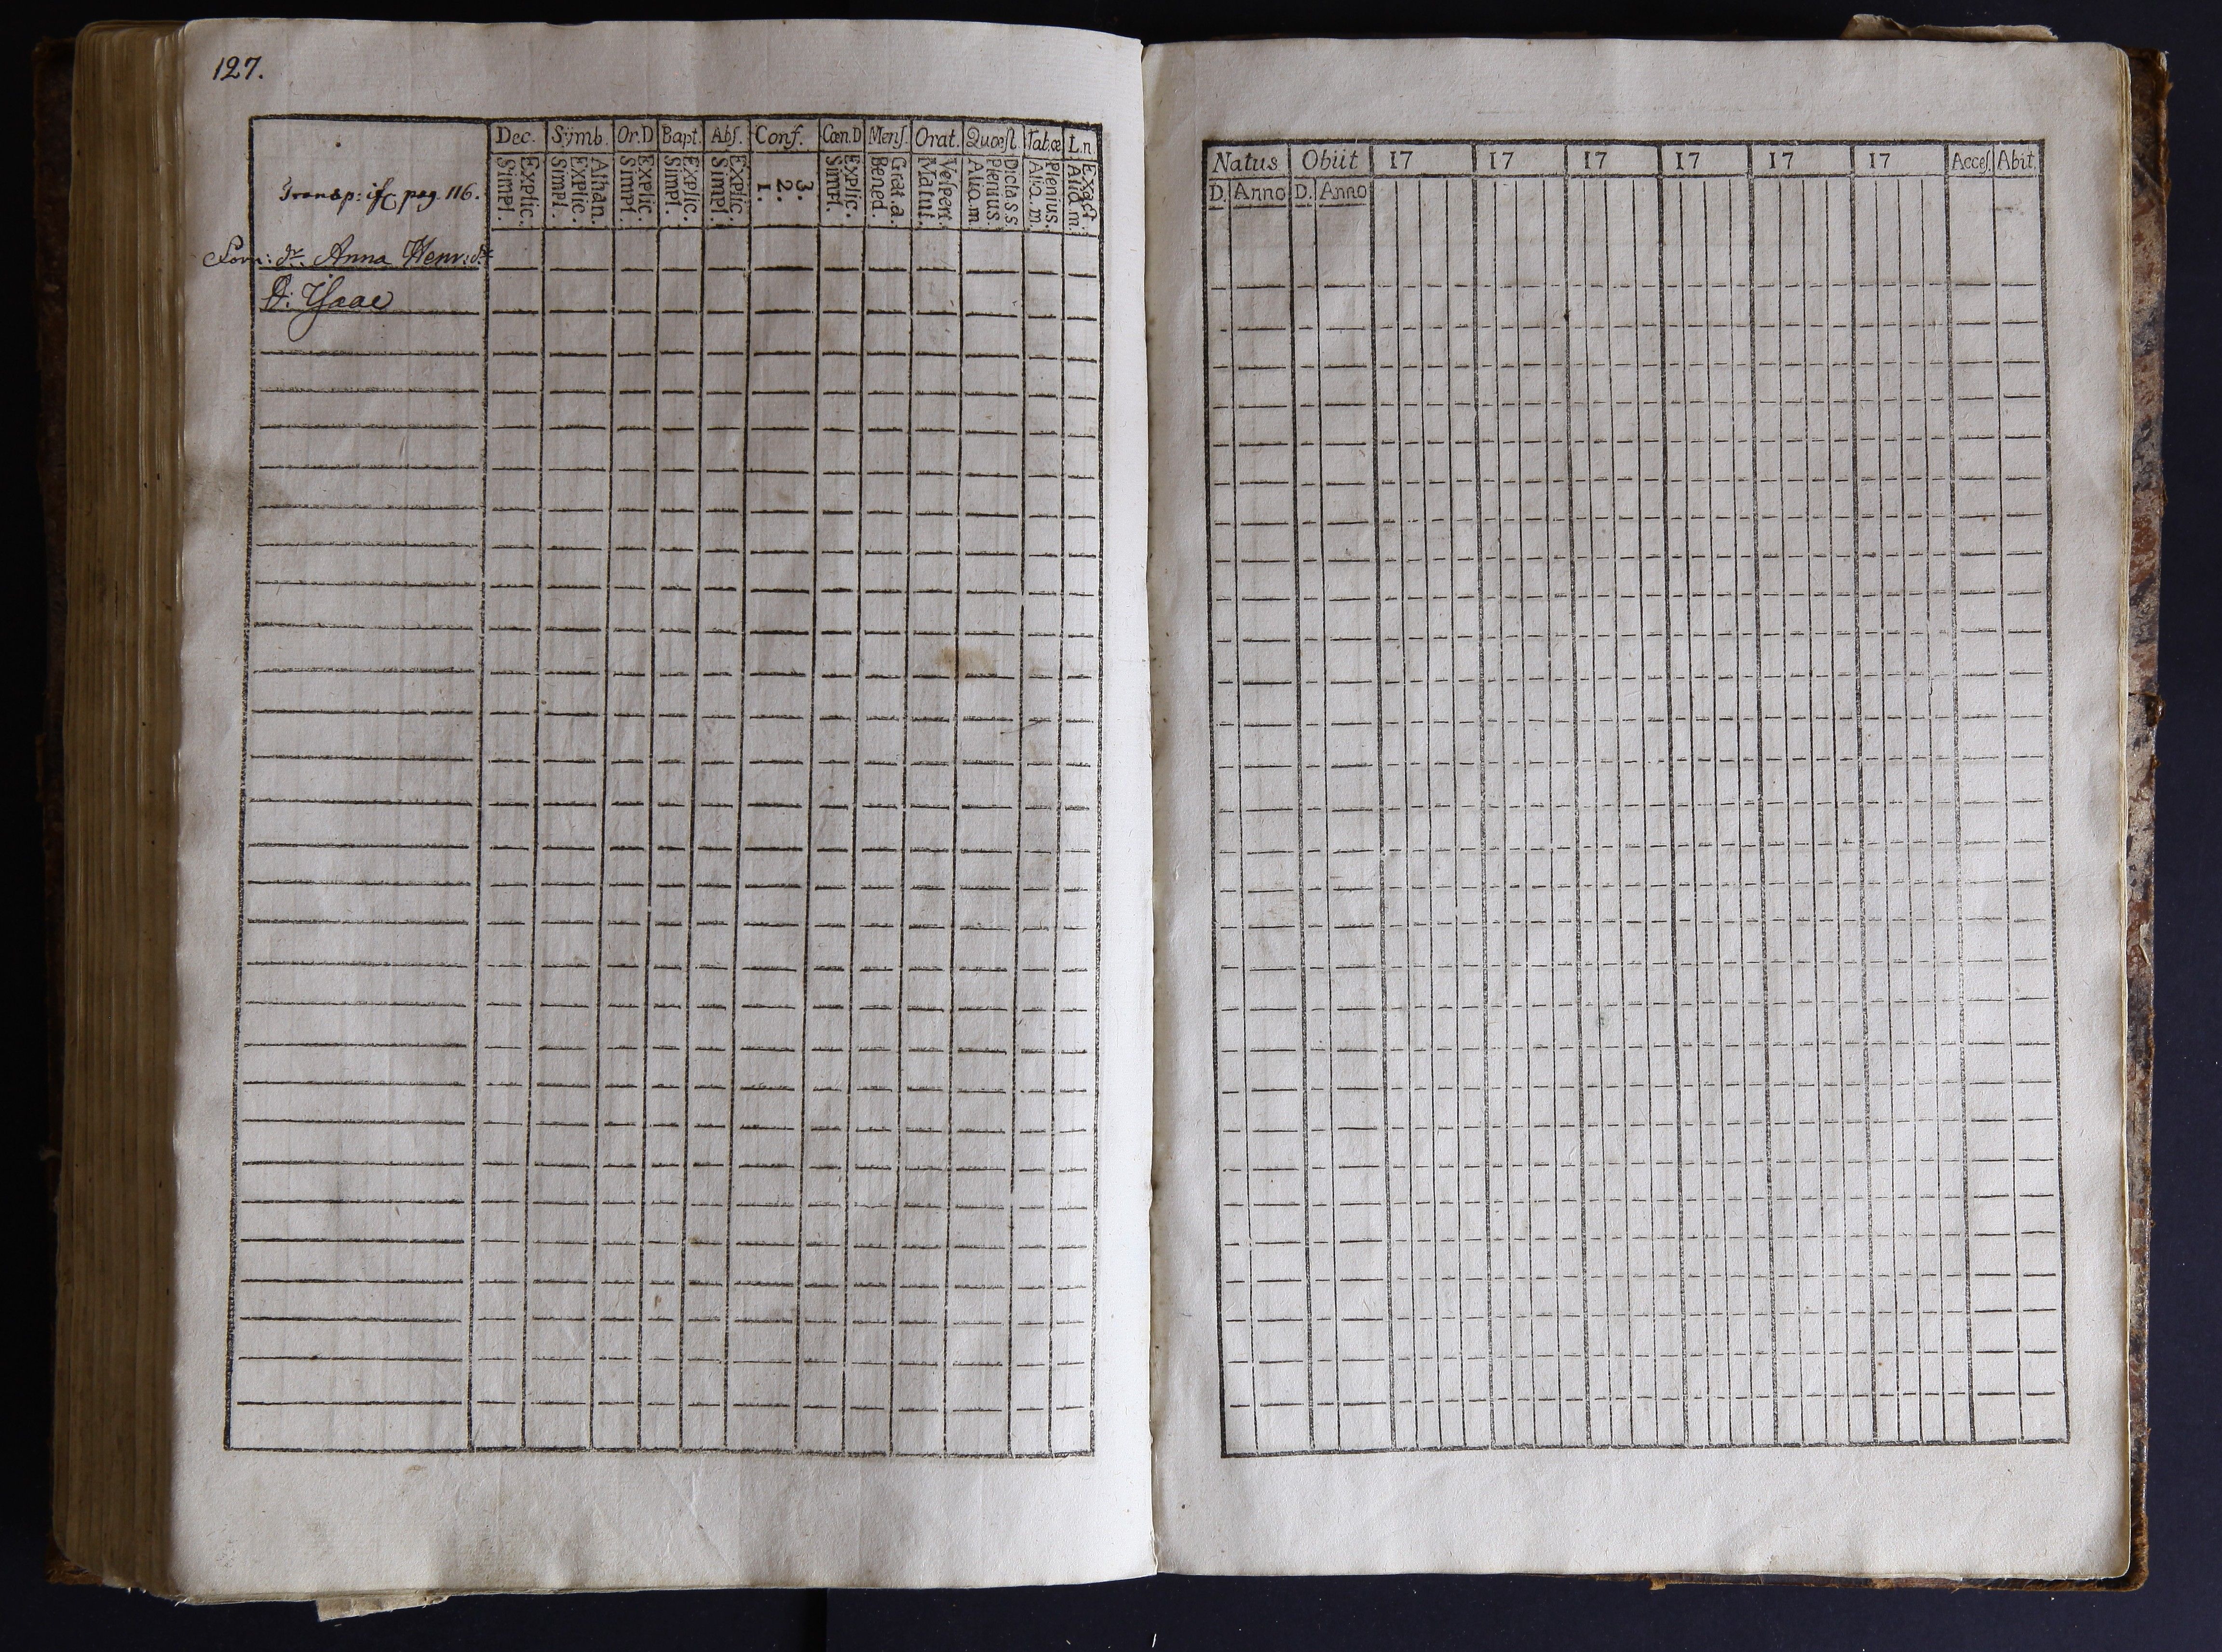 127.
Dec. Sÿmb. Or.D Bapt. Abſ. Conf. Cœn.D Menſ. Orat. Quœſt. Tab.œ L.n.
Explic. Simpl.
Athan. Explic. Simpl.
Explic. Simpl.
Explic. Simpl.
Explic. Simpl.
3. 2. 1.
Explic. Simpl.
Grat.a. Bened.
Veſpert. Matut.
Dicta s.s. Plenius. Aliq.m.
Plenius. Aliq.m.
Exact. Aliq.m.
Transp: pag. 116.
Anna Henr: dr
D: Isaac
Natus Obiit 17 17 17 17 17 17 Acceſ. Abit.
D. Anno D. Anno